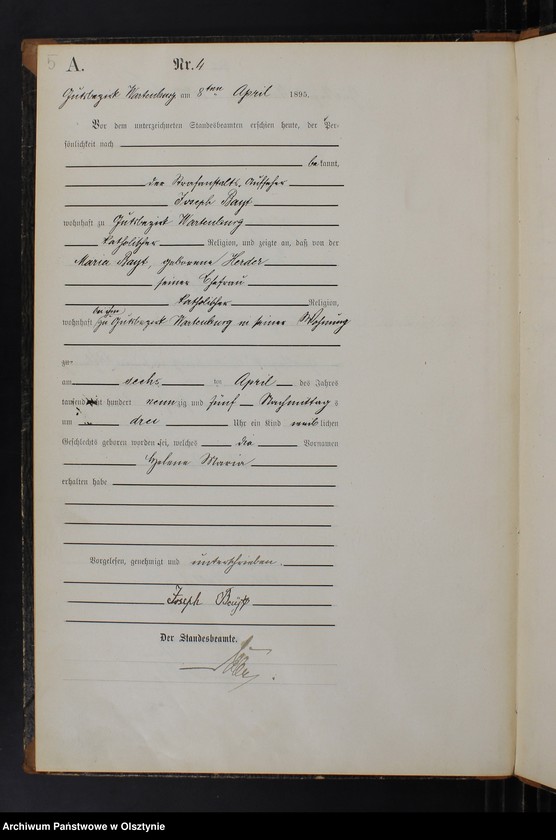 5
A.
Nr. 4
Gutsbezirk Wartenburg am 8ten April 1895.
Vor dem unterzeichneten Standesbeamten erschien heute, der Per-
sönlichkeit nach
be kannt,
der Strafanstalts-Aufseher
Joseph
wohnhaft zu Gutsbezirk Wartenburg
katholischer Religion, und zeigte an, daß von der
Maria geborene Herder
seiner Ehefrau
katholischer Religion,
wohnhaft bei ihm
zu Gutsbezirk Wartenburg in seiner Wohnung
zu
am sechs ten April des Jahres
tausend acht hundert neunzig und fünf Nachmittag s
um drei Uhr ein Kind weiblichen
Geschlechts geboren worden sei, welches die Vornamen
Helene Maria
erhalten habe
Vorgelesen, genehmigt und unterschrieben.
Joseph
Der Standesbeamte.
Archiwum Państwowe w Olsztynie